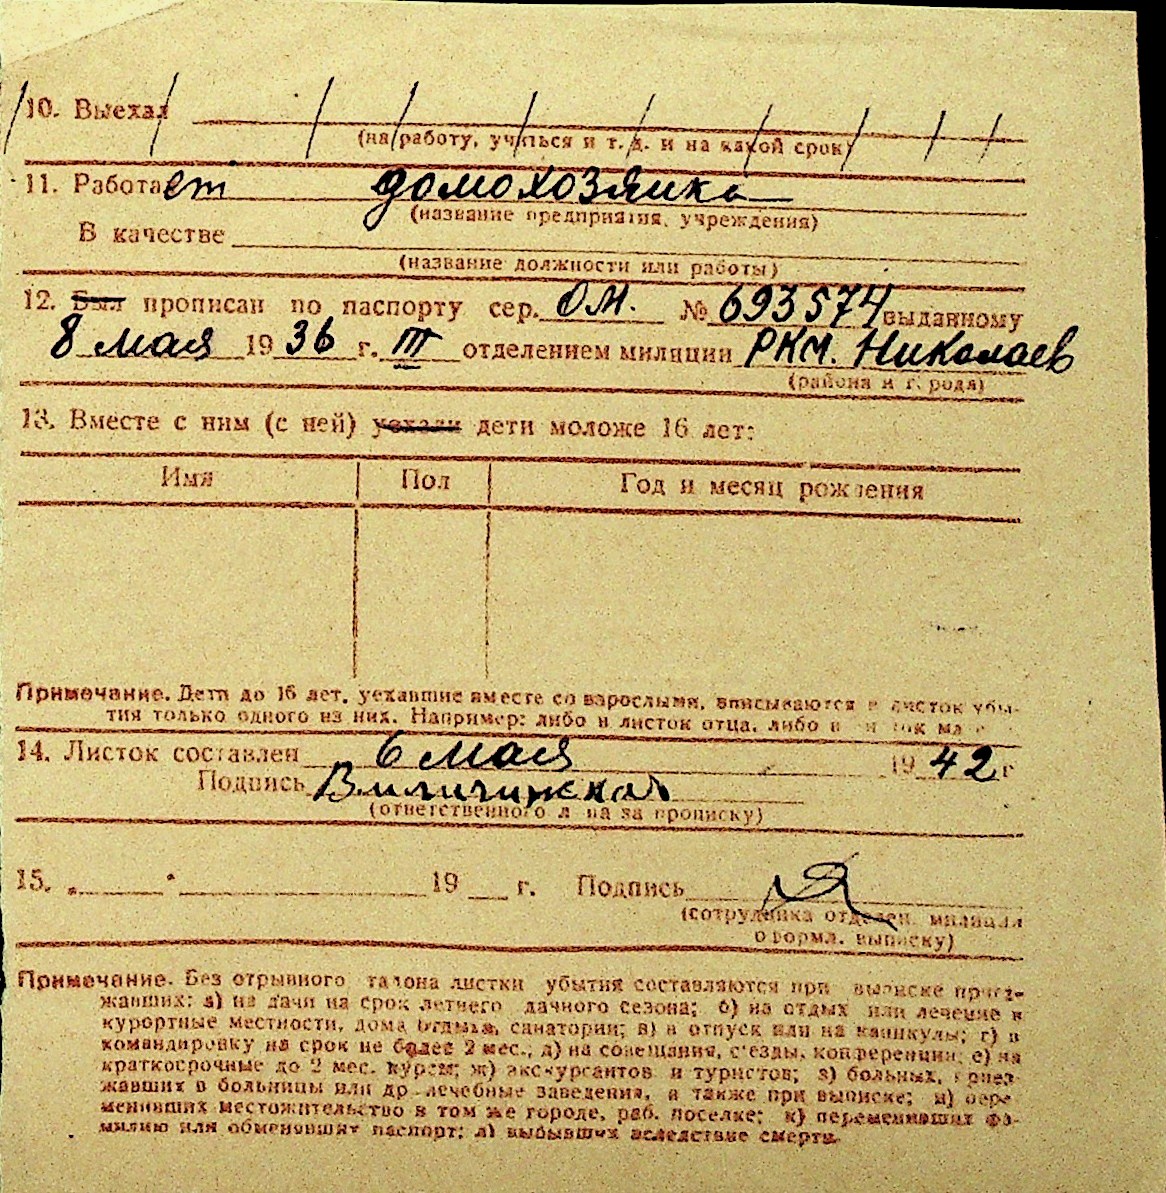 10. Выехал
(на работу, учиться и т. д. и на какой срок)
11. Работает домохозяйка
(название предприятия, учреждения)
В качестве
(название должности или работы)
12. Был прописан по паспорту сер. ОМ. № 693574 выданному
8 мая 1936 г. III отделением милиции РКМ. Николаев
(района и города)
13. Вместе с ним (с ней) уехали дети моложе 16 лет:
Имя Пол Год и месяц рождения
Примечание. Дети до 16 лет, уехавшие вместе со взрослыми, вписываются в листок убы-
тия только одного из них. Например: либо в листок отца, либо в
14. Листок составлен 6 мая 1942 г
Подпись
(ответственного лица за прописку)
15. „ " 19 г. Подпись
(сотрудника отделен. милиции
оформл. выписку)
Примечание. Без отрывного талона листки убытия составляются при выписке приез-
жавших: а) на дачи на срок летнего дачного сезона; б) на отдых или лечение в
курортные местности, дома отдыха, санатории; в) в отпуск или на каникулы; г) в
командировку на срок не более 2 мес.; д) на совещания, съезды, конференции; е) на
краткосрочные до 2 мес. курсы; ж) экскурсантов и туристов; з) больных, приез-
жавших в больницы или др. лечебные заведения, а также при выписке; и) пере-
менивших местожительство в том же городе, раб. поселке; к) переменивших фа-
милию или обменявших паспорт; л) выбывших вследствие смерти.